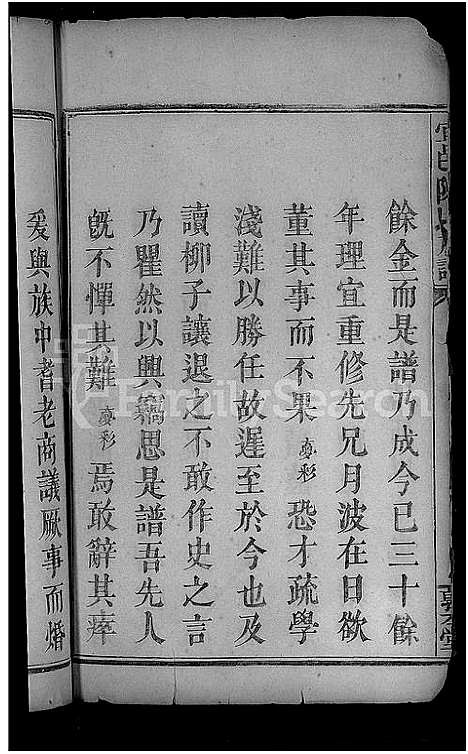 餘金而是譜乃成今已三十餘
年理宜重修先兄月波在日欲
董其事而不果 彩 恐才疏學
淺難以勝任故遲至於今也及
讀柳子讓退之不敢作史之言
乃瞿然以興竊思是譜吾先人
既不憚其難 彩 焉敢辭其瘁
爰與族中耆老商議厥事而婚
FamilySearch